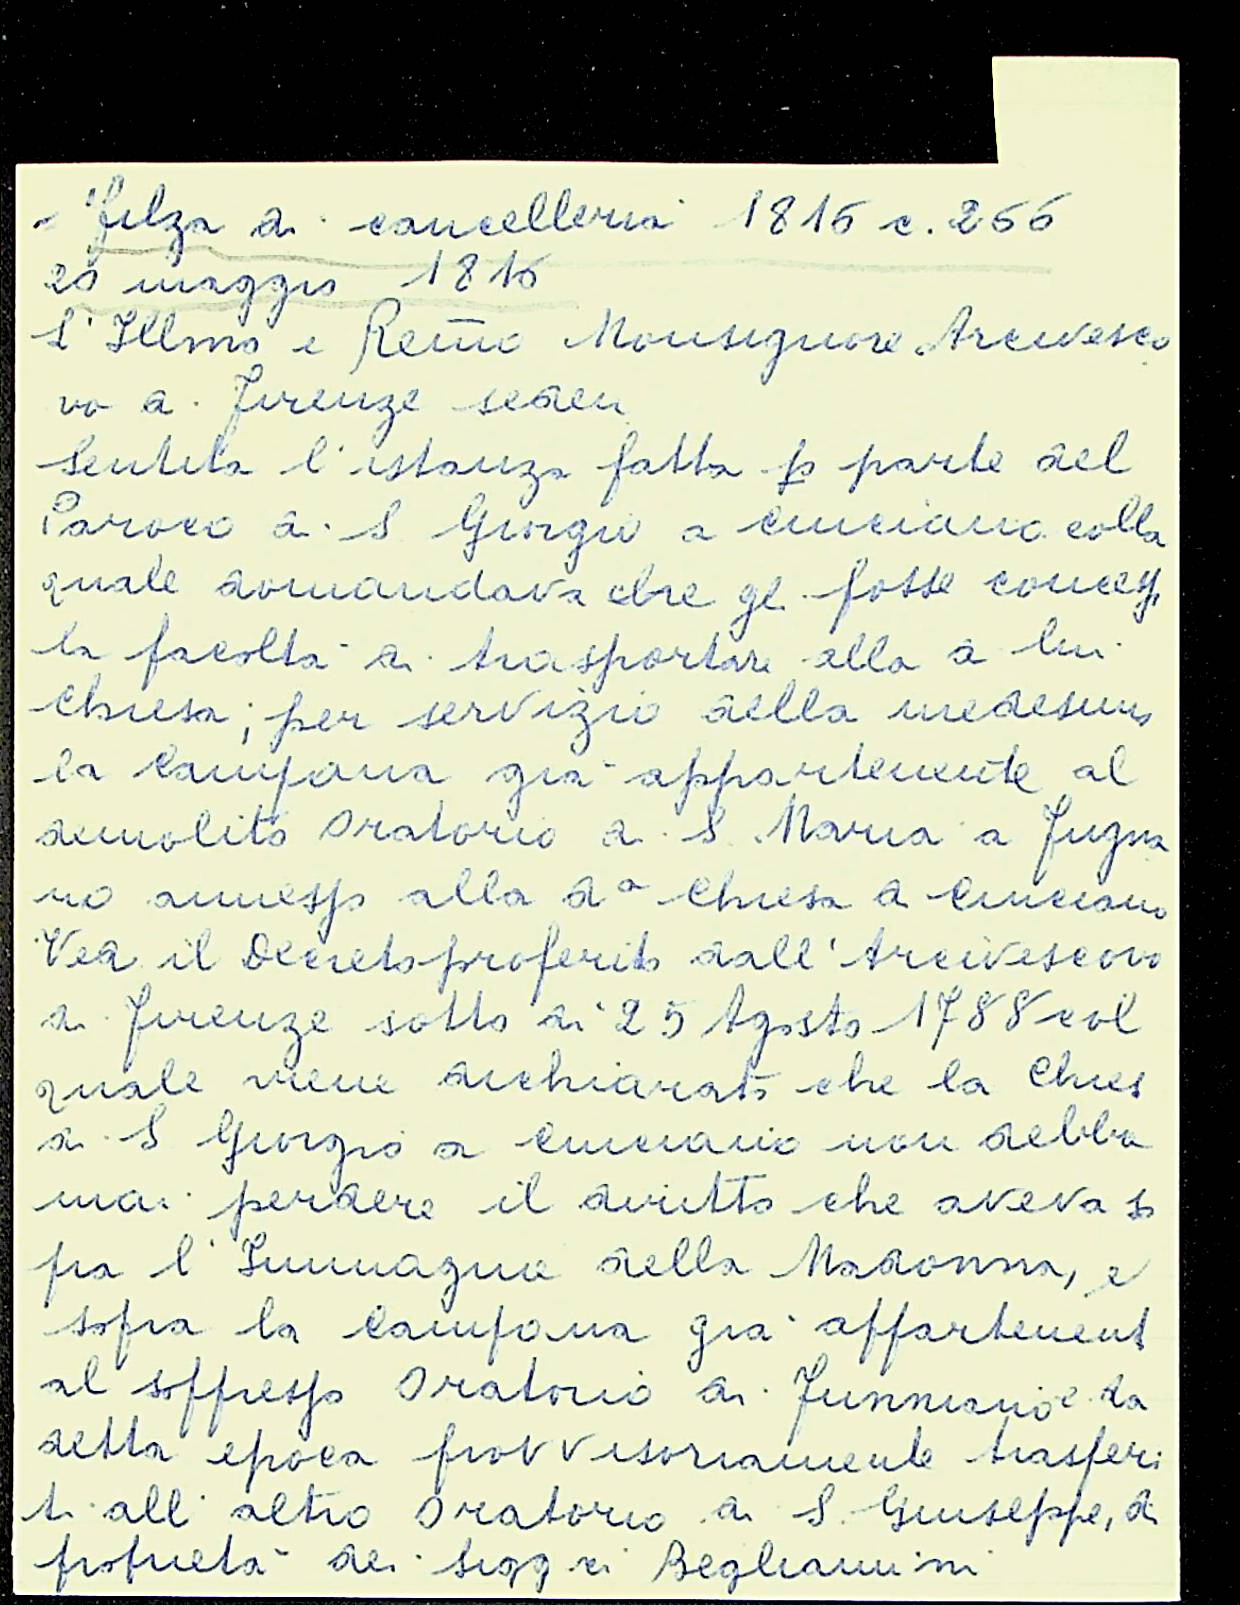 - Filza di cancelleria 1816 c. 266
20 maggio 1816
L'Illmo e Remo Monsignore Arcivesco
vo di Firenze seden
Sentita l'istanza fatta p parte del
Paroco di S Giorgio a Cinciano colla
quale domandava che gli fosse concess
la facoltà di trasportare alla di lui
Chiesa; per servizio della medesima
la Campana già appartenente al
demolito Oratorio di S. Maria a Fugna
no annesso alla da Chiesa di Cinciano
Ved. il Decreto proferito dall'Arcivescovo
di Firenze sotto di 25 Agosto 1788 col
quale viene dichiarato che la Chies
di S Giorgio a Cinciano non debba
mai perdere il diritto che aveva so
pra l'Immagine della Madonna, e
sopra la Campana già appartenent
al soppresso Oratorio di e da
detta epoca provvisoriamente trasferi
ti all'altro Oratorio di S. Giuseppe, di
proprietà dei Sigg ri Begliamini